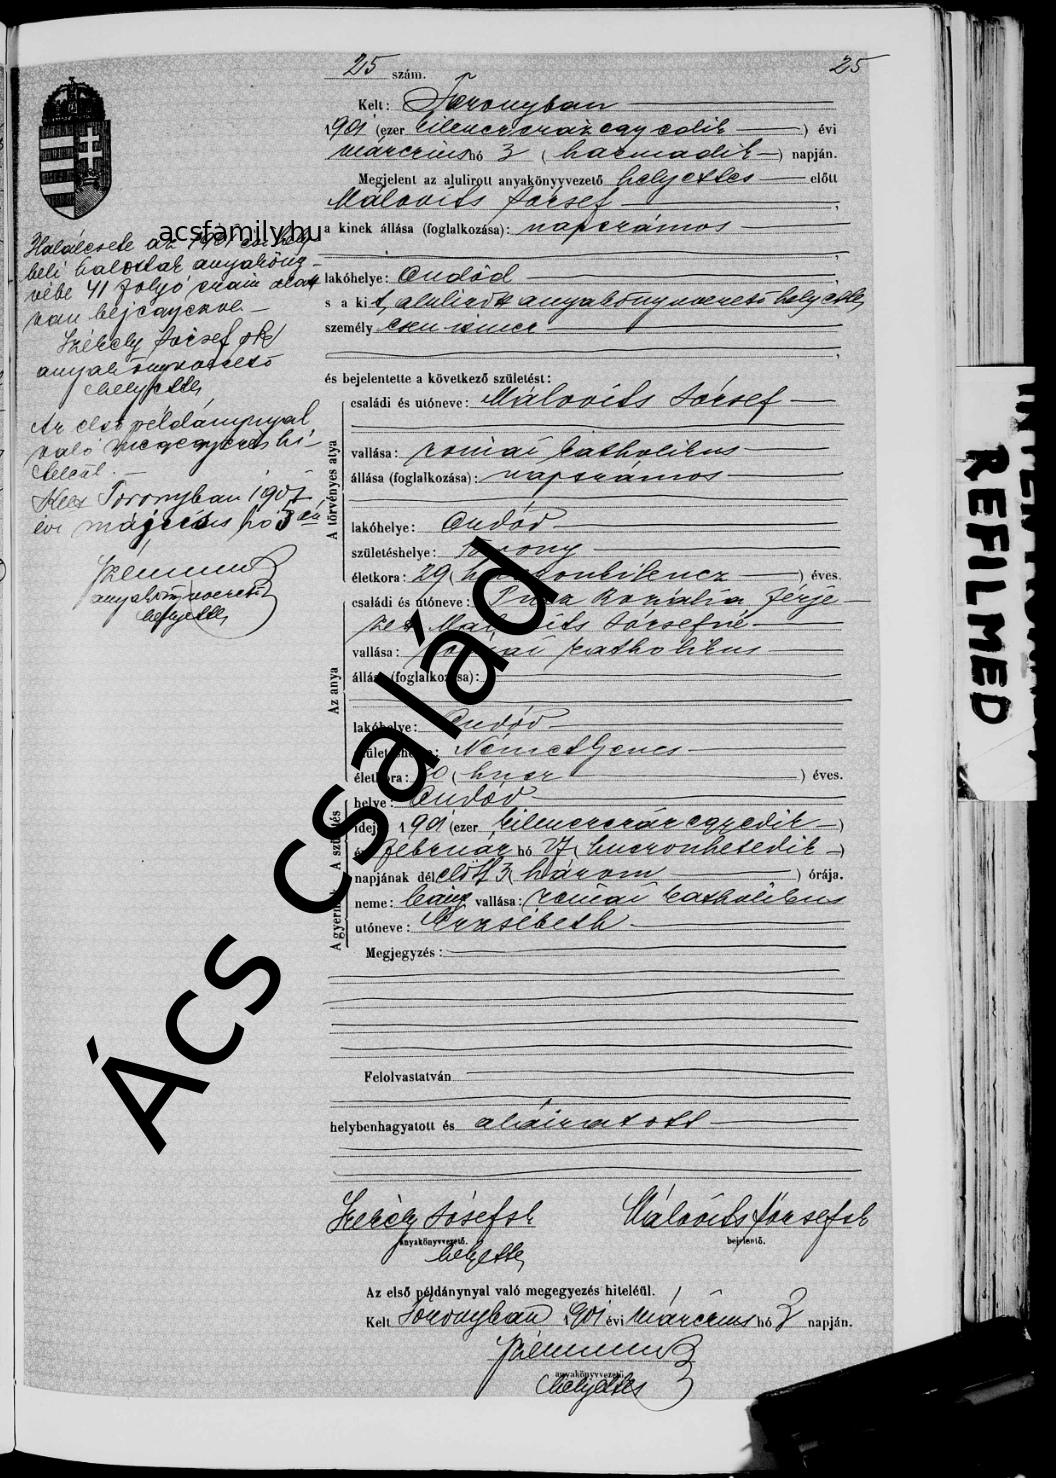 25 szám.
25
Kelt: Toronyban
1901 (ezer kilenczszáz egyedik) évi
márczius hó 3 (harmadik) napján.
Megjelent az alulirott anyakönyvvezető helyettes előtt
Málovits József
a kinek állása (foglalkozása): napszámos
lakóhelye: Ondód
s a kit, alulirott anyakönyvvezető helyettes,
személyesen ismer
és bejelentette a következő születést:
A törvényes atya
családi és utóneve: Málovits József
vallása: római katholikus
állása (foglalkozása): napszámos
lakóhelye: Ondód
születéshelye: Torony
életkora: 29 (huszonkilencz) éves.
Az anya
családi és utóneve: Rozália férje-
zett Málovits Józsefné
vallása: római katholikus
állása (foglalkozása):
lakóhelye: Ondód
születéshelye: Német Gencs
életkora: 20 (húsz) éves.
A születés
helye: Ondód
ideje: 1901 (ezer kilenczszáz egyedik)
évi február hó 27 (huszonhetedik)
napjának délelőtt 3 (három) órája.
A gyermek
neme: leány vallása: római katholikus
utóneve: Erzsébeth
Megjegyzés:
Felolvastatván
helybenhagyatott és aláiratott
Székely József sk Málovits József sk
anyakönyvvezető. bejelentő.
helyettes
Az első példánynyal való megegyezés hiteléül.
Kelt Toronyban 1901 évi márczius hó 3 napján.
anyakönyvvezető.
helyettes
acsfamily.hu
Halálesete az 1901
beli halottak anyaköny-
vébe 41 folyó szám alatt
van bejegyezve.
Székely József sk
anyakönyvvezető
helyettes
Az első példánynyal
való megegyezés hi-
teléül.
Kelt Toronyban 1901
évi hó
anyakönyvvezető
helyettes
Ács család
REFILMED